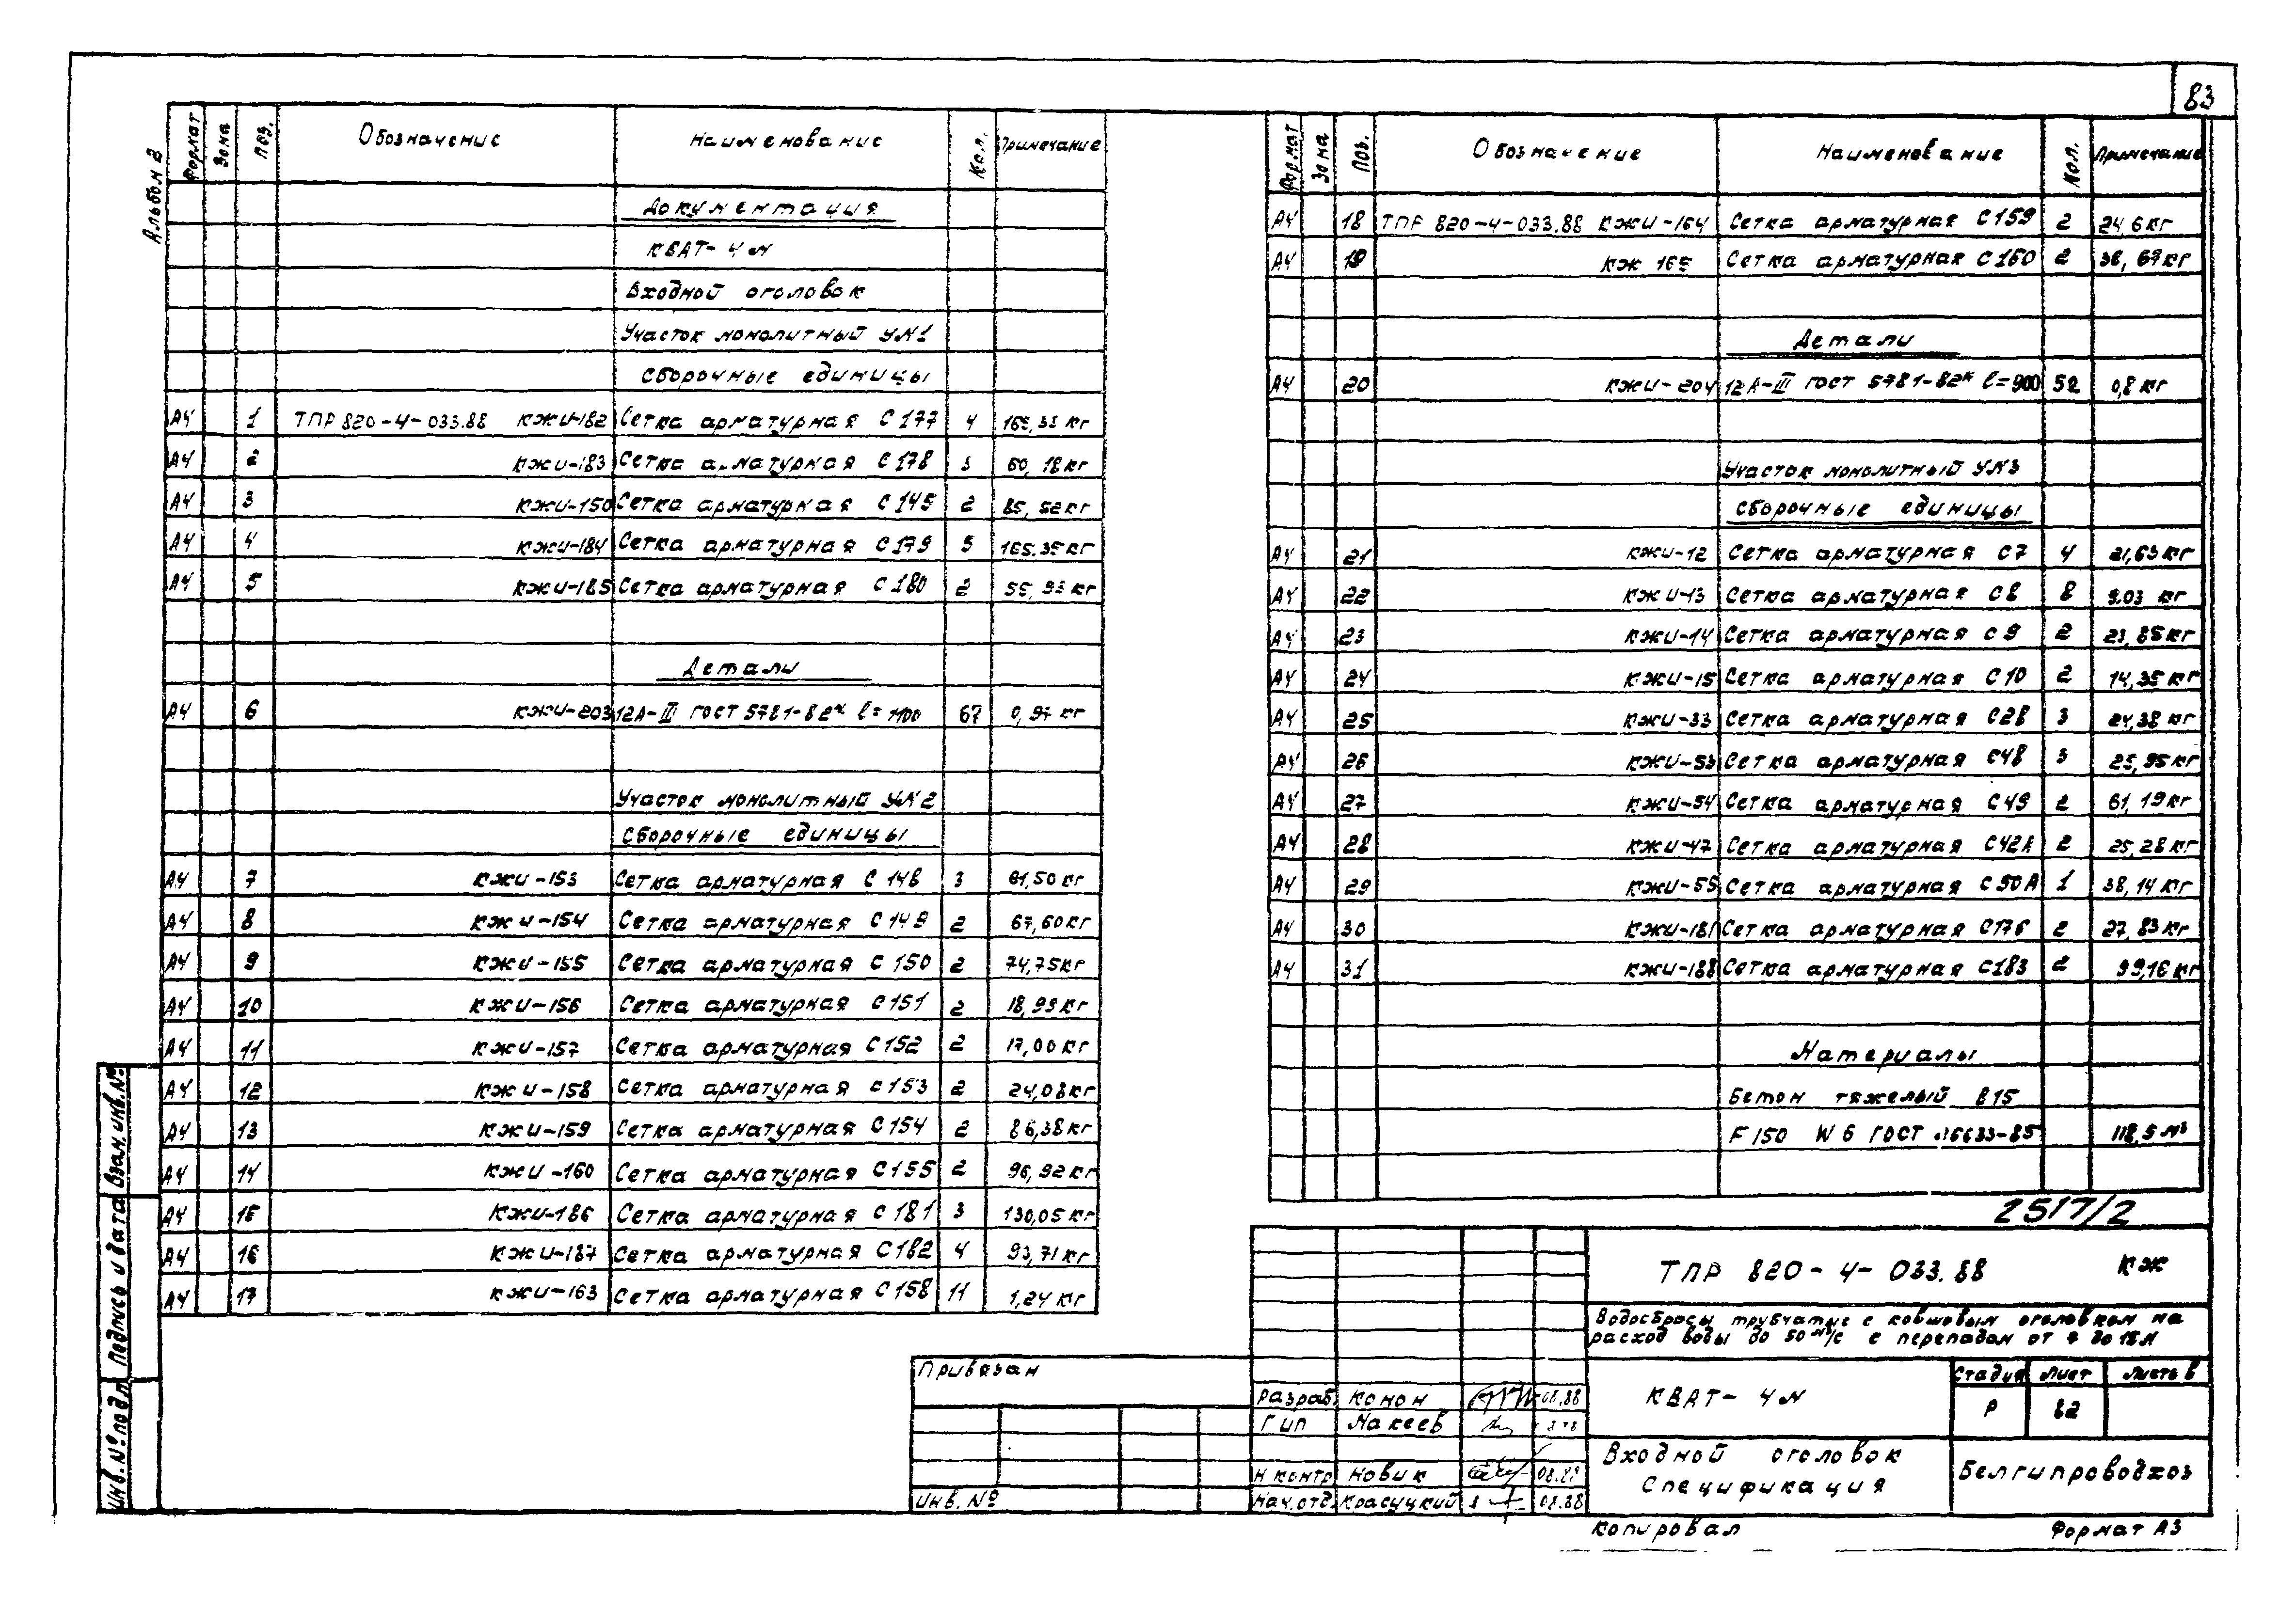 83
Альбом 2
Формат Зона Поз. Обозначение Наименование Кол. Примечание
Документация
КВАТ-4м
Входной оголовок
Участок монолитный УМ1
Сборочные единицы
А4 1 ТПР 820-4-033.88 КЖИ-182 Сетка арматурная С177 4 кг
А4 2 КЖИ-183 Сетка арматурная С178 3 60,18 кг
А4 3 КЖИ-150 Сетка арматурная С145 2 85,52 кг
А4 4 КЖИ-184 Сетка арматурная С179 5 165.35 кг
А4 5 КЖИ-185 Сетка арматурная С180 2 55,93 кг
Детали
А4 6 КЖИ-203 12А-III ГОСТ 5781-82* l=1100 67 кг
Участок монолитный УМ2
Сборочные единицы
А4 7 КЖИ-153 Сетка арматурная С148 3 61,50 кг
А4 8 КЖИ-154 Сетка арматурная С149 2 67,60 кг
А4 9 КЖИ-155 Сетка арматурная С150 2 74,75 кг
А4 10 КЖИ-156 Сетка арматурная С151 2 18,93 кг
А4 11 КЖИ-157 Сетка арматурная С152 2 17,00 кг
А4 12 КЖИ-158 Сетка арматурная С153 2 24,08 кг
А4 13 КЖИ-159 Сетка арматурная С154 2 86,38 кг
А4 14 КЖИ-160 Сетка арматурная С155 2 96,92 кг
А4 15 КЖИ-186 Сетка арматурная С181 3 130,05 кг
А4 16 КЖИ-187 Сетка арматурная С182 4 93,71 кг
А4 17 КЖИ-163 Сетка арматурная С158 11 1,24 кг
Формат Зона Поз. Обозначение Наименование Кол. Примечание
А4 18 ТПР 820-4-033.88 КЖИ-164 Сетка арматурная С159 2 24,6 кг
А4 19 КЖ 165 Сетка арматурная С160 2 38,69 кг
Детали
А4 20 КЖИ-204 12А-III ГОСТ 5781-82* l=900 52 0,8 кг
Участок монолитный УМ3
Сборочные единицы
А4 21 КЖИ-12 Сетка арматурная С7 4 21,63 кг
А4 22 КЖИ-13 Сетка арматурная С8 8 9.03 кг
А4 23 КЖИ-14 Сетка арматурная С9 2 23,85 кг
А4 24 КЖИ-15 Сетка арматурная С10 2 14,35 кг
А4 25 КЖИ-33 Сетка арматурная С28 3 24,38 кг
А4 26 КЖИ-53 Сетка арматурная С48 3 25,95 кг
А4 27 КЖИ-54 Сетка арматурная С49 2 61,19 кг
А4 28 КЖИ-47 Сетка арматурная С42А 2 25,28 кг
А4 29 КЖИ-55 Сетка арматурная С50А 1 38,14 кг
А4 30 КЖИ-181 Сетка арматурная С176 2 27,83 кг
А4 31 КЖИ-188 Сетка арматурная С183 2 99,16 кг
Материалы
Бетон тяжелый В15
F150 W6 ГОСТ 118,5 м³
2517/2
ТПР 820-4-033.88 КЖ
Водосбросы трубчатые с ковшовым оголовком на
расход воды до 50 м³/с с перепадом от 4 до
КВАТ-4м
Стадия Лист Листов
Р 82
Входной оголовок
Спецификация
Белгипроводхоз
Разраб. Конон 08.88
ГИП Макеев
Н контр Новик
Нач.отд. Красуцкий 08.88
Привязан
Инв. №
Взам. инв. №
Подпись и дата
Инв. № подл
Копировал Формат А3